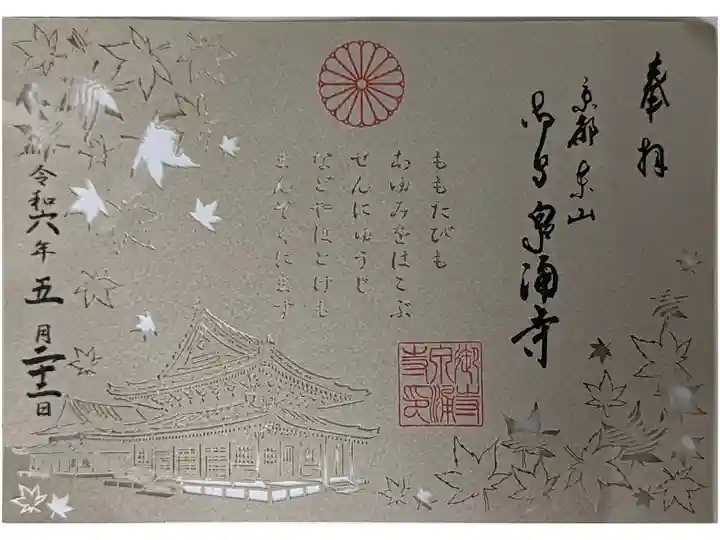 奉拝
京都東山
御寺 泉涌寺
ももたびも
あゆみをはこぶ
せんにゆうじ
などやほとけも
御寺
泉涌
寺印
令和六年五月二十二日